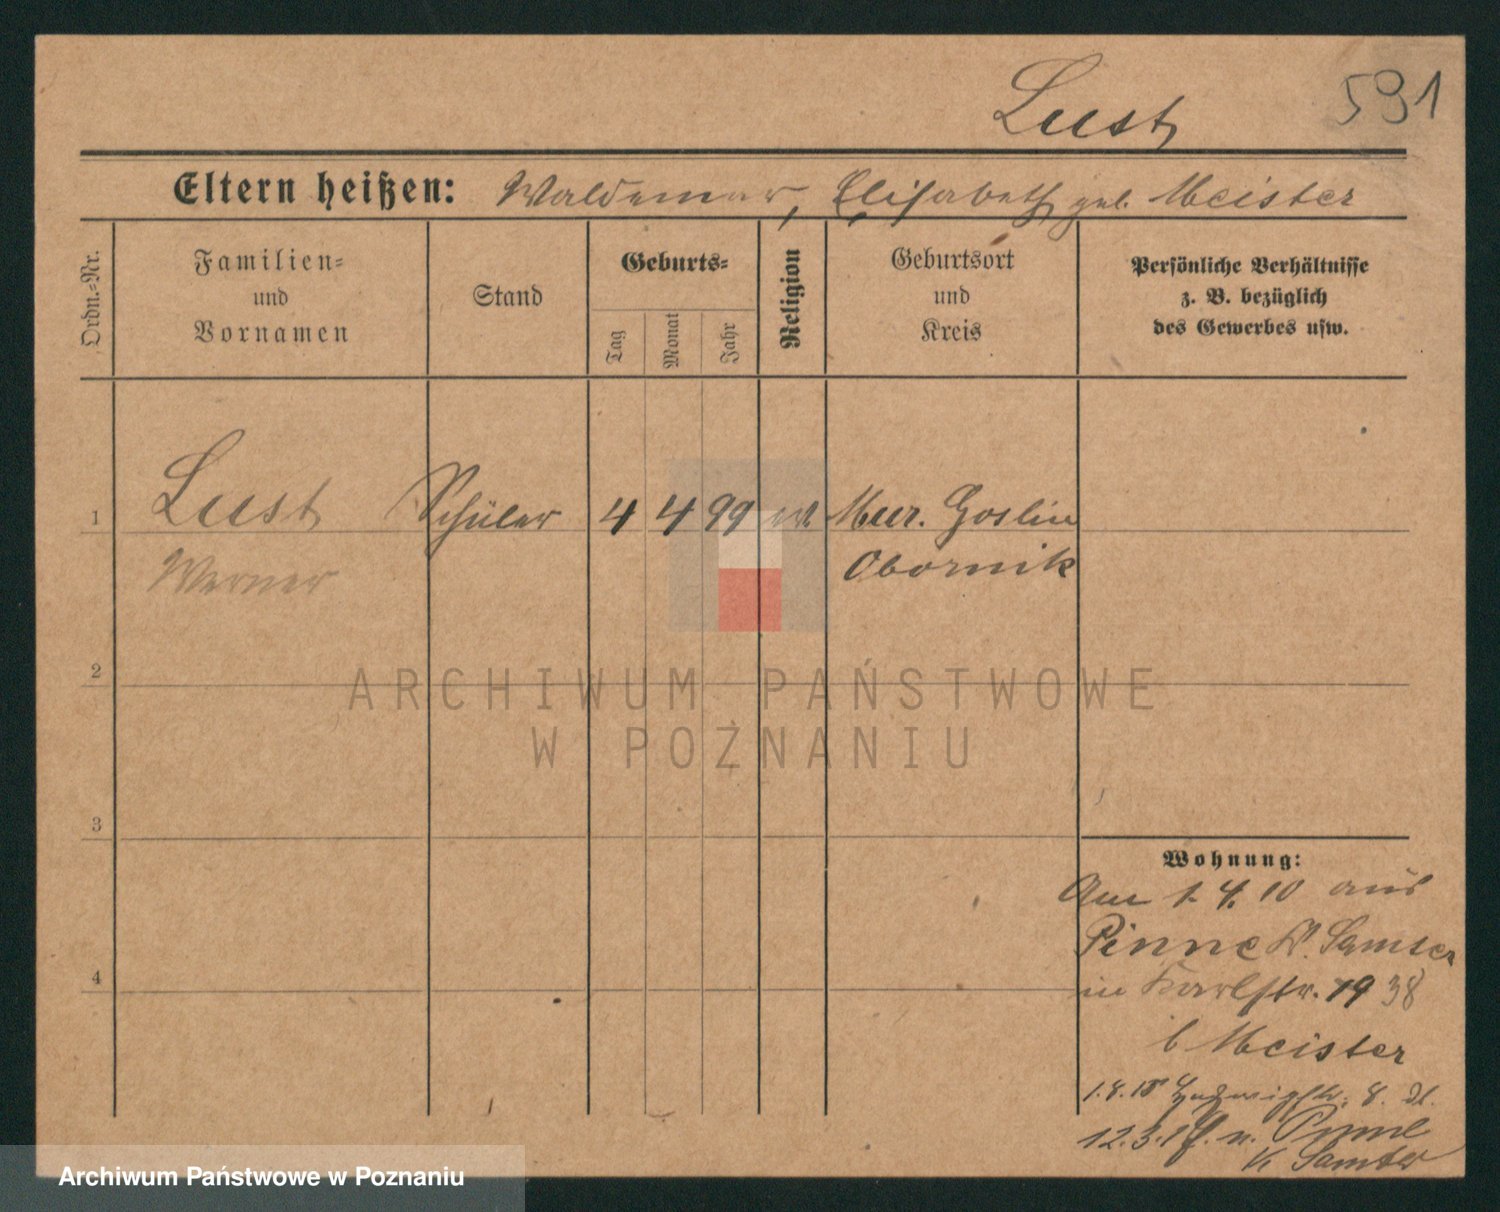 591
Lust
Eltern heißen: Waldemar, Elisabeth geb. Meister
Ordn.-Nr.
Familien-
und
Vornamen
Stand
Geburts-
Tag
Monat
Jahr
Religion
Geburtsort
und
Kreis
Persönliche Verhältnisse
z. B. bezüglich
des Gewerbes usw.
1 Lust Schüler 4 4 99 ev. Mur. Goslin
Werner Obornik
2
ARCHIWUM PAŃSTWOWE
W POZNANIU
3
4
Wohnung:
Am 1. 4. 10 aus
Pinne K. Samter
in Karlstr. 19 38
b Meister
8. dl.
12.3. n. Pinne
K Samter
Archiwum Państwowe w Poznaniu